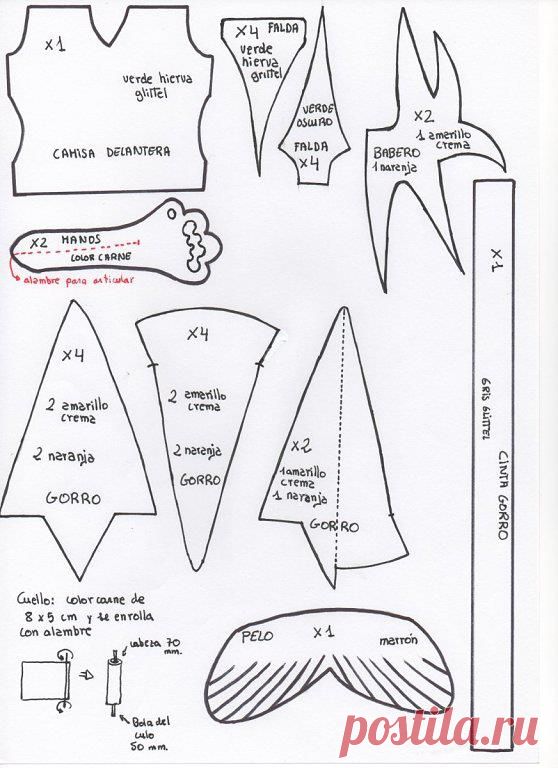 X1
verde hierva
glittel
CAMISA DELANTERA
X4 FALDA
verde
hierva
grittel
VERDE
OSCURO
FALDA
X4
X2
1 amarillo
crema
BABERO
1 naranja
X2 MANOS
COLOR CARNE
alambre para articular
X1
GRIS GLITTEL
CINTA GORRO
X4
2 amarillo
crema
2 naranja
GORRO
X4
2 amarillo
crema
2 naranja
GORRO
X2
1 amarillo
crema
1 naranja
GORRO
Cuello: color carne de
8 x 5 cm y se enrolla
con alambre
cabeza 70
mm.
Bola del
culo
50 mm.
PELO X1 marrón
postila.ru